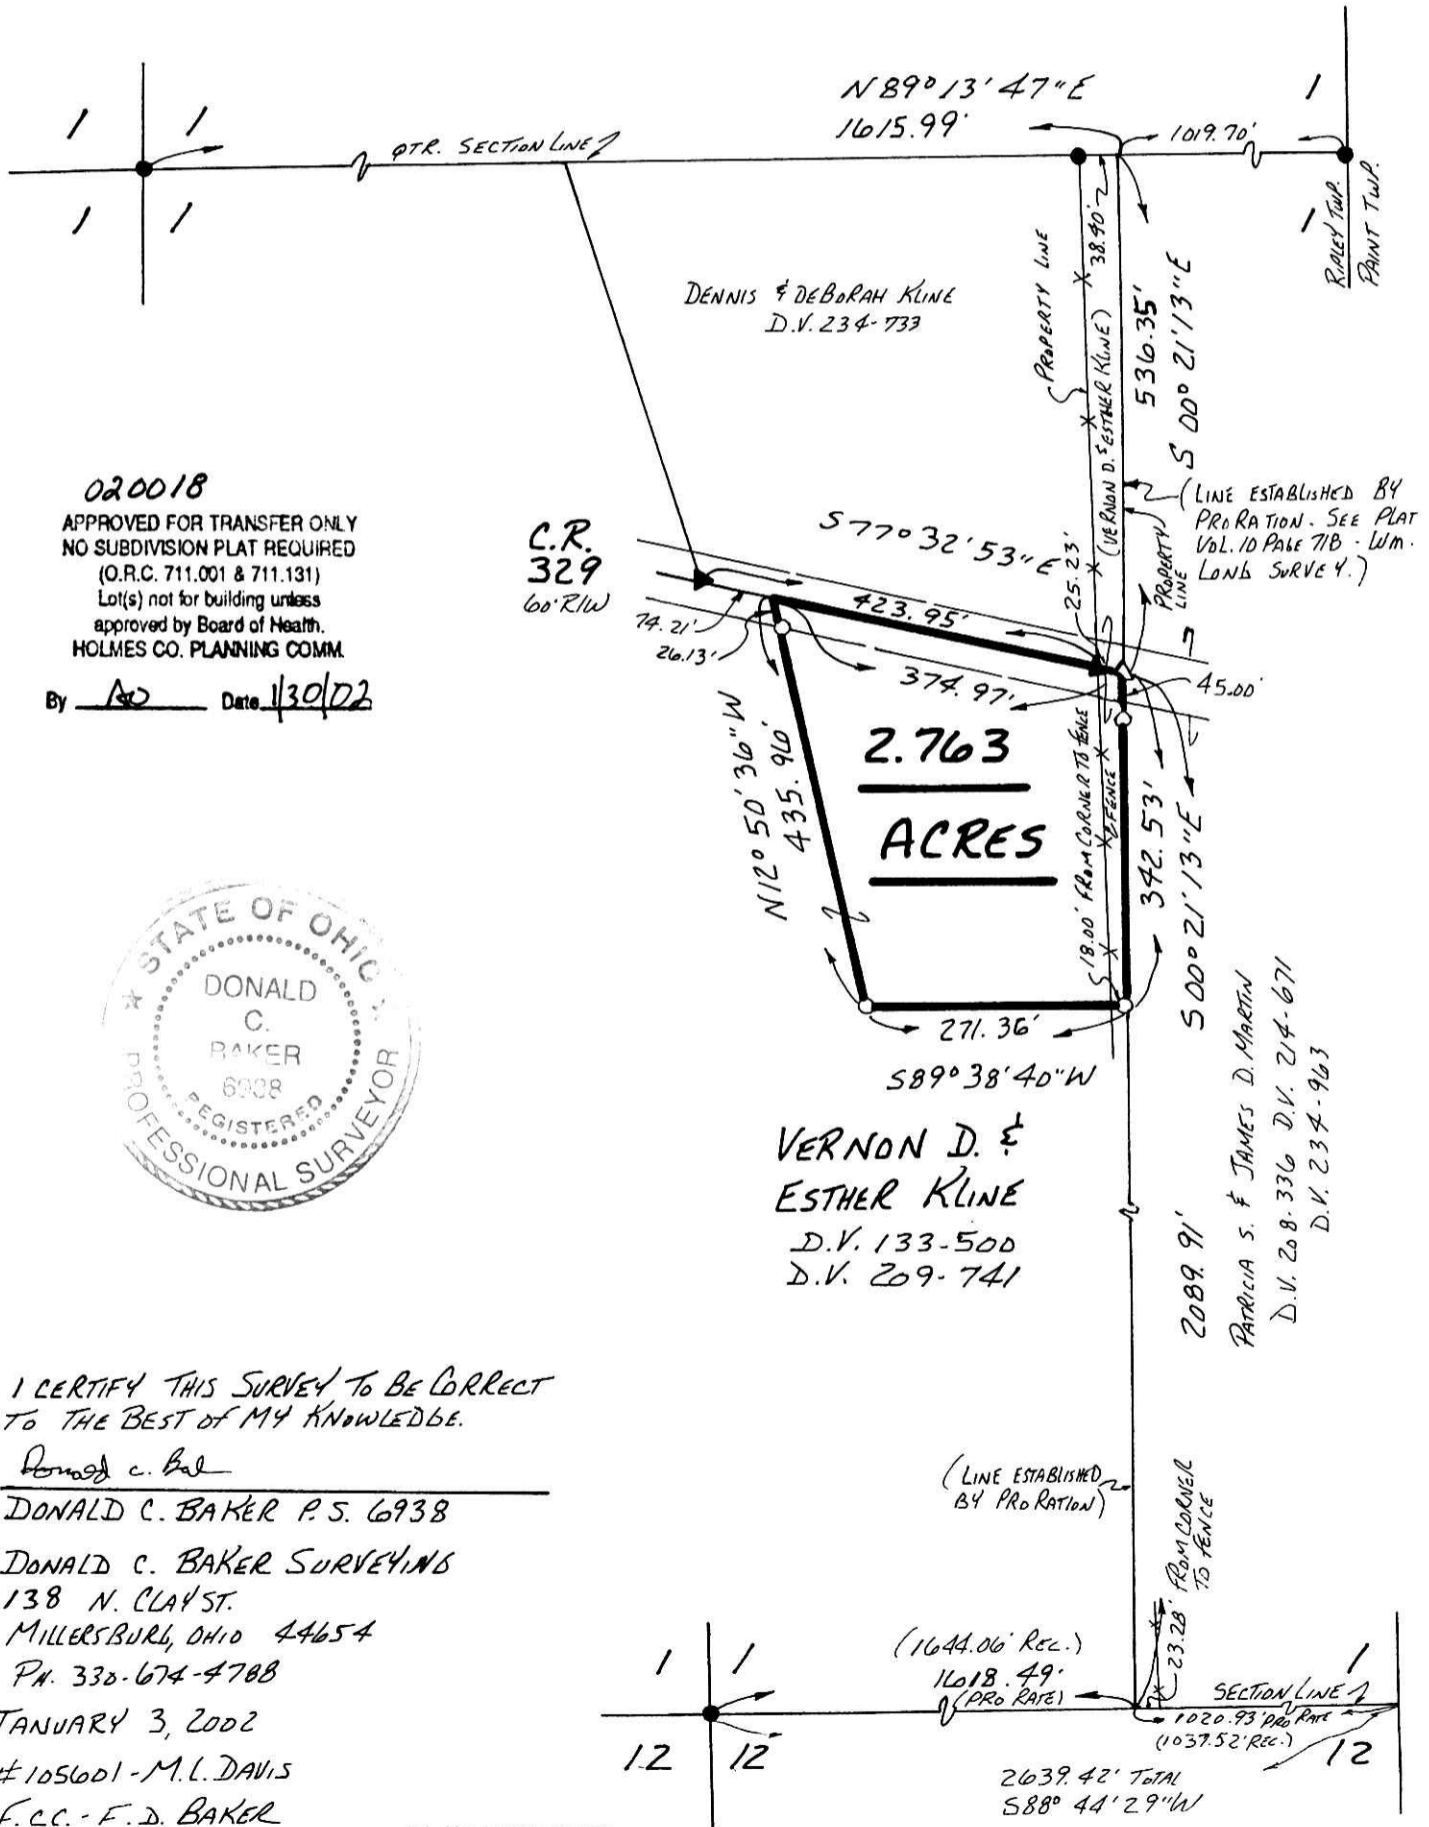 N 89° 13' 47" E
1615.99'
1019.70'
1
1
1
1
1
1
QTR. SECTION LINE
RIPLEY TWP.
PAINT TWP.
DENNIS & DEBORAH KLINE
D.V. 234-733
PROPERTY LINE
38.40'
(VERNON D. & ESTHER KLINE)
536.35'
S 00° 21' 13" E
(LINE ESTABLISHED BY
PRORATION. SEE PLAT
VOL. 10 PAGE 71B - WM.
LONG SURVEY.)
PROPERTY
LINE
020018
APPROVED FOR TRANSFER ONLY
NO SUBDIVISION PLAT REQUIRED
(O.R.C. 711.001 & 711.131)
Lot(s) not for building unless
approved by Board of Health.
HOLMES CO. PLANNING COMM.
By Date 1/30/02
C.R.
329
60' R/W
S 77° 32' 53" E
423.95'
25.23'
74.21'
26.13'
374.97'
45.00'
N 12° 50' 36" W
435.96'
2.763
ACRES
18.00' FROM CORNER TO FENCE
FENCE
342.53'
S 00° 21' 13" E
271.36'
S 89° 38' 40" W
STATE OF OHIO
DONALD
C.
BAKER
6938
REGISTERED
PROFESSIONAL SURVEYOR
VERNON D. &
ESTHER KLINE
D.V. 133-500
D.V. 209-741
2089.91'
PATRICIA S. & JAMES D. MARTIN
D.V. 208-336 D.V. 214-671
D.V. 234-963
I CERTIFY THIS SURVEY TO BE CORRECT
TO THE BEST OF MY KNOWLEDGE.
DONALD C. BAKER P.S. 6938
DONALD C. BAKER SURVEYING
138 N. CLAY ST.
MILLERSBURG, OHIO 44654
PH. 330-674-4788
JANUARY 3, 2002
#105601 - M.L. DAVIS
F.C.C. - F.D. BAKER
(LINE ESTABLISHED
BY PRORATION)
23.28' FROM CORNER
TO FENCE
1
1
1
12
12
12
(1644.06' REC.)
1618.49'
(PRO RATE)
SECTION LINE
1020.93' PRO RATE
(1037.52' REC.)
2639.42' TOTAL
S 88° 44' 29" W